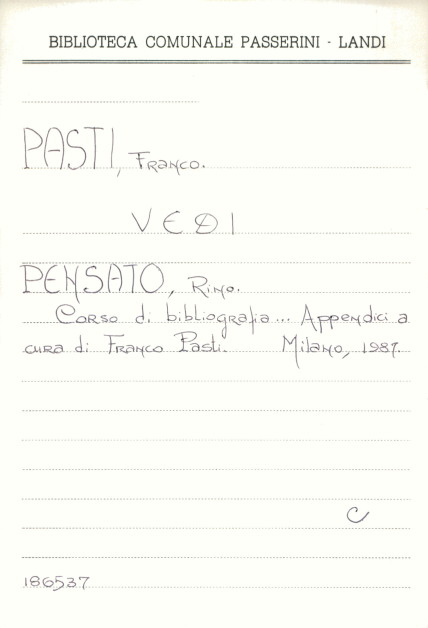 BIBLIOTECA COMUNALE PASSERINI - LANDI
PASTI, Franco.
VEDI
PENSATO, Rino.
Corso di bibliografia... Appendici a
cura di Franco Pasti. Milano, 1987.
C
186537